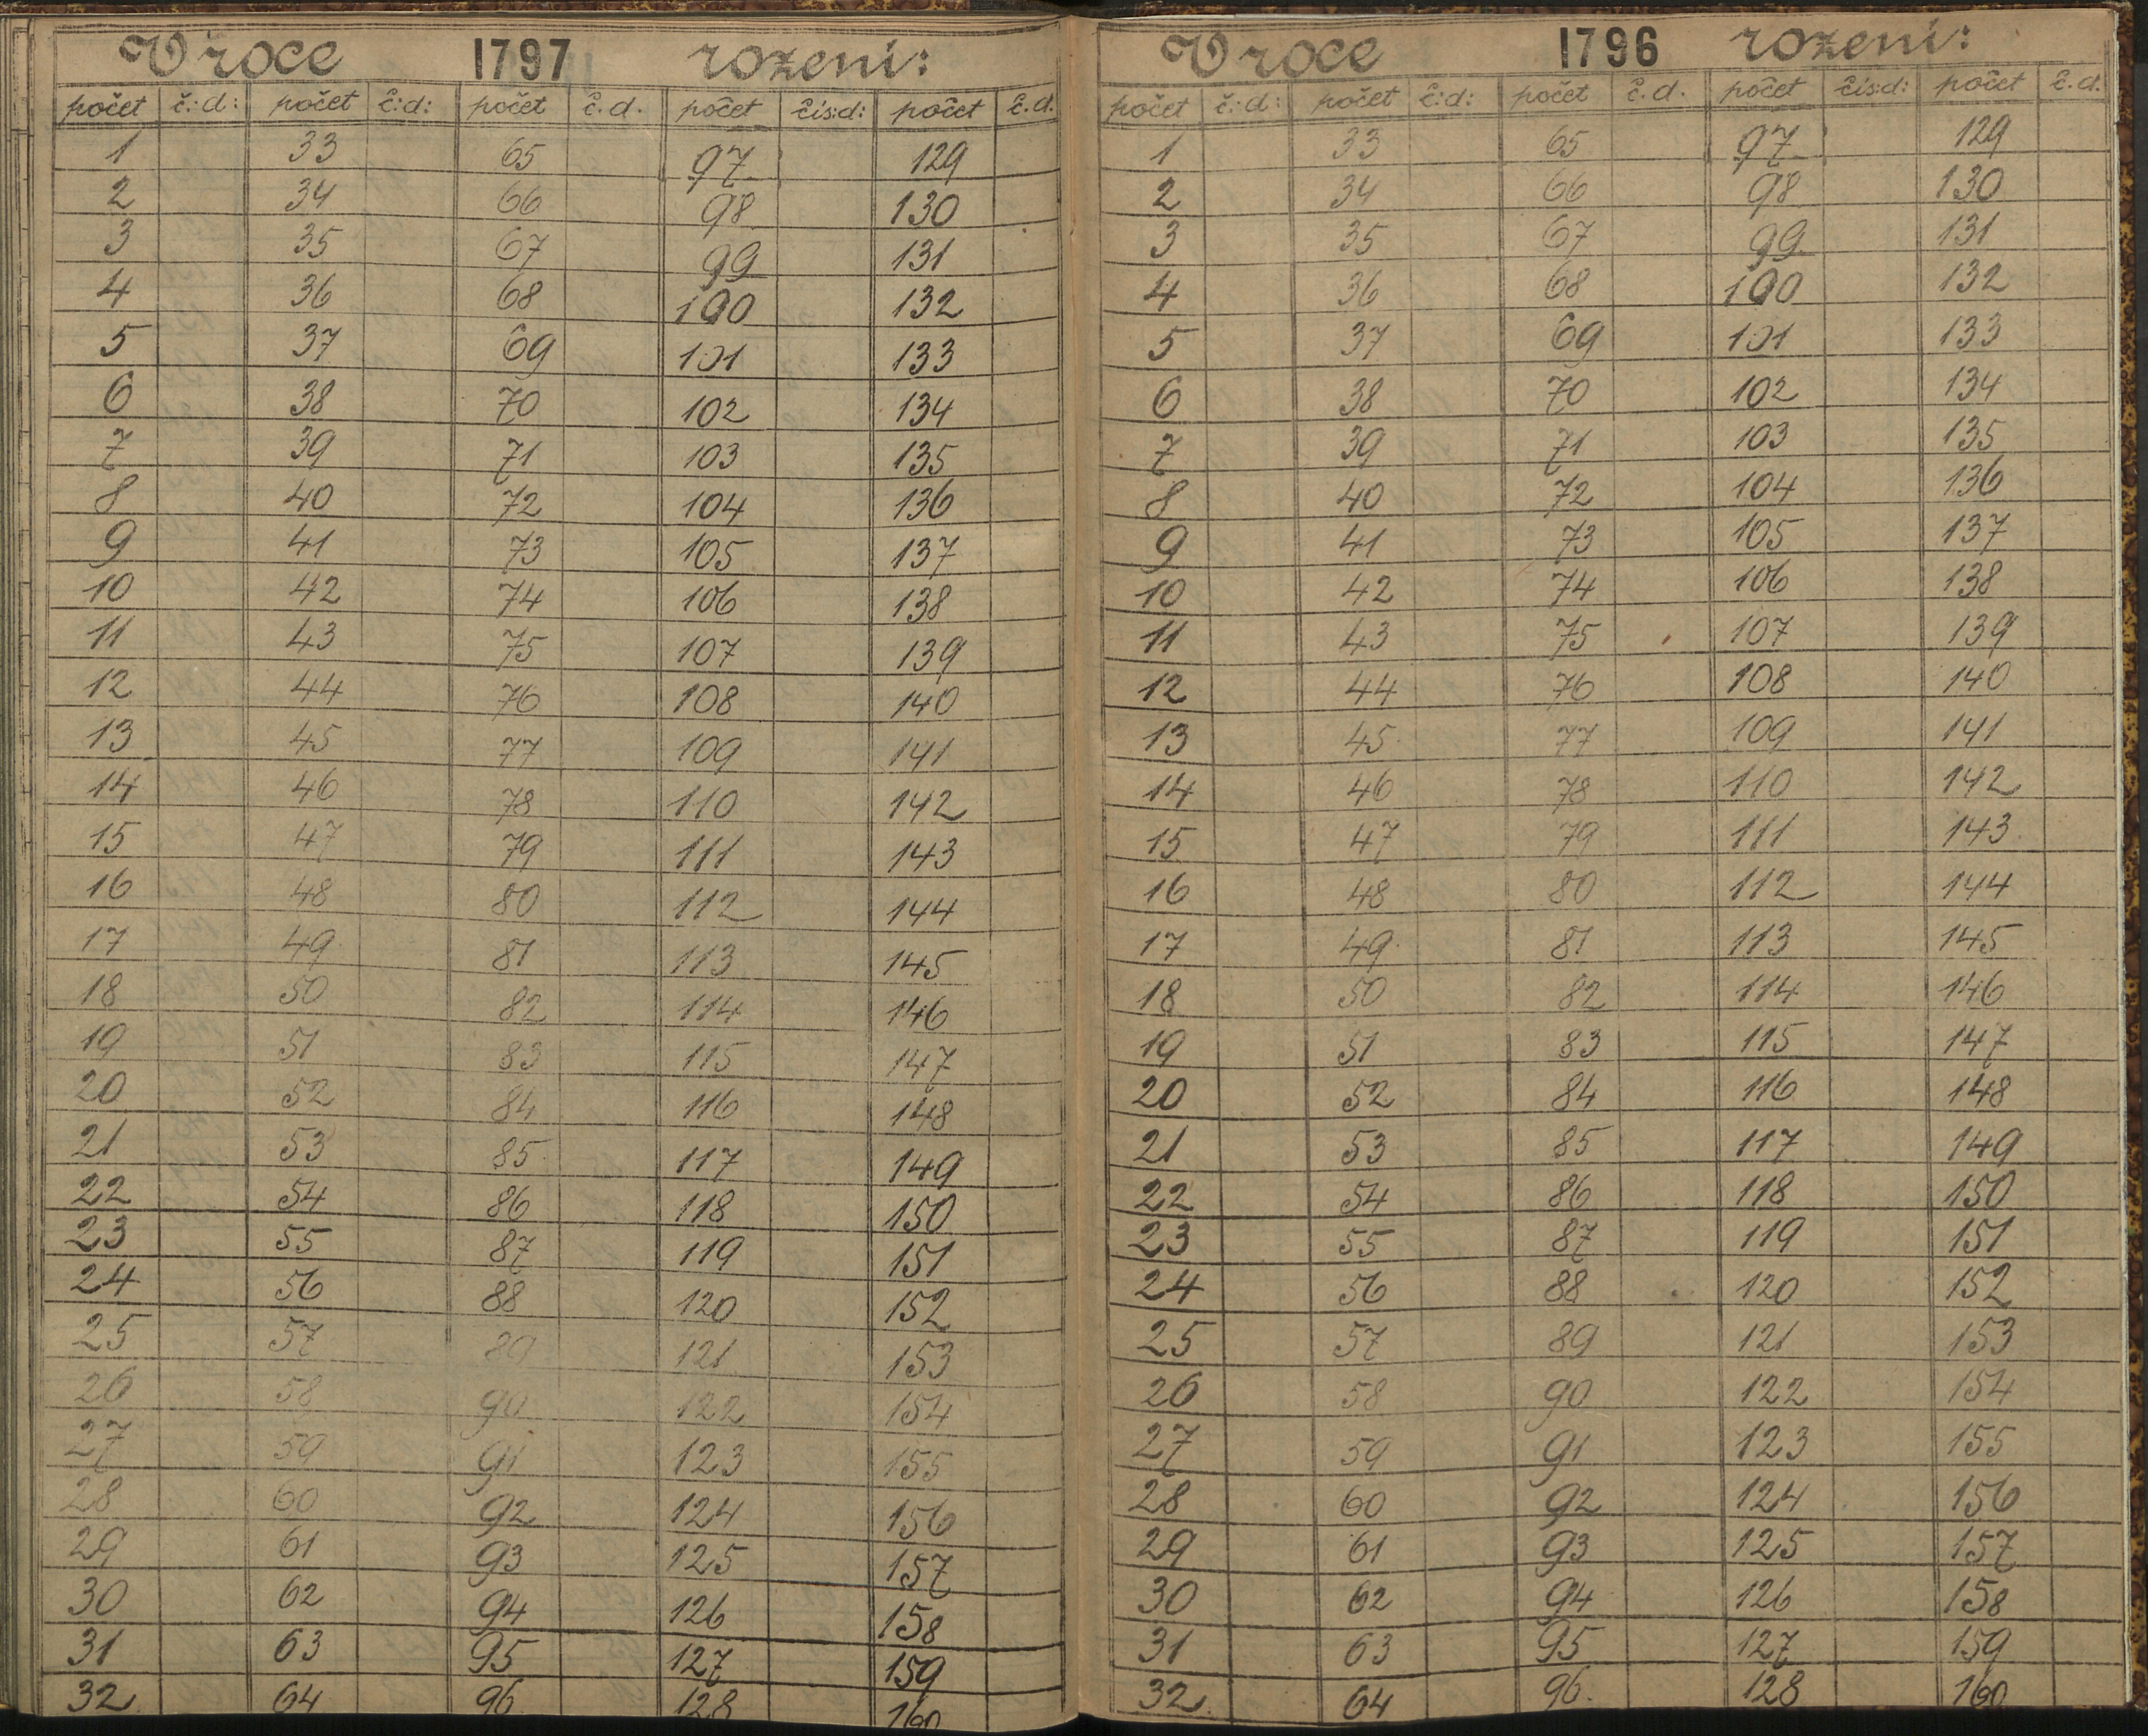 V roce 1797 rozeni:
počet č.:d: počet č:d: počet č.d. počet čís:d: počet č.d.
1 33 65 97 129
2 34 66 98 130
3 35 67 99 131
4 36 68 100 132
5 37 69 101 133
6 38 70 102 134
7 39 71 103 135
8 40 72 104 136
9 41 73 105 137
10 42 74 106 138
11 43 75 107 139
12 44 76 108 140
13 45 77 109 141
14 46 78 110 142
15 47 79 111 143
16 48 80 112 144
17 49 81 113 145
18 50 82 114 146
19 51 83 115 147
20 52 84 116 148
21 53 85 117 149
22 54 86 118 150
23 55 87 119 151
24 56 88 120 152
25 57 89 121 153
26 58 90 122 154
27 59 91 123 155
28 60 92 124 156
29 61 93 125 157
30 62 94 126 158
31 63 95 127 159
32 64 96 128 160
V roce 1796 rozeni:
počet č.:d: počet č:d: počet č.d. počet čís:d: počet č.d.
1 33 65 97 129
2 34 66 98 130
3 35 67 99 131
4 36 68 100 132
5 37 69 101 133
6 38 70 102 134
7 39 71 103 135
8 40 72 104 136
9 41 73 105 137
10 42 74 106 138
11 43 75 107 139
12 44 76 108 140
13 45 77 109 141
14 46 78 110 142
15 47 79 111 143
16 48 80 112 144
17 49 81 113 145
18 50 82 114 146
19 51 83 115 147
20 52 84 116 148
21 53 85 117 149
22 54 86 118 150
23 55 87 119 151
24 56 88 120 152
25 57 89 121 153
26 58 90 122 154
27 59 91 123 155
28 60 92 124 156
29 61 93 125 157
30 62 94 126 158
31 63 95 127 159
32 64 96 128 160